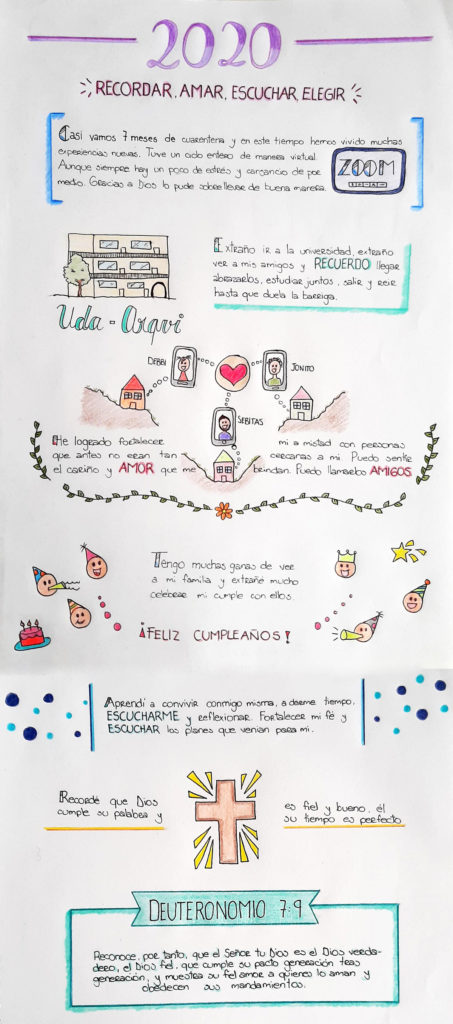 2020
RECORDAR, AMAR, ESCUCHAR, ELEGIR
Casi vamos 7 meses de cuarentena y en este tiempo hemos vivido muchas
experiencias nuevas. Tuve un ciclo entero de manera virtual.
Aunque siempre hay un poco de estrés y cansancio de por
medio. Gracias a Dios lo pude sobrellevar de buena manera.
ZOOM
Extraño ir a la universidad, extraño
ver a mis amigos y RECUERDO llegar
abrazarlos, estudiar juntos, salir y reir
hasta que duela la barriga.
Uda - Arqui
DEBBI
JONITO
SEBITAS
He logrado fortalecer mi a mistad con personas
que antes no eran tan cercanas a mi. Puedo sentir
el cariño y AMOR que me brindan. Puedo llamarlos AMIGOS.
Tengo muchas ganas de ver
a mi familia y extrañé mucho
celebrar mi cumple con ellos.
¡FELIZ CUMPLEAÑOS!
Aprendí a convivir conmigo misma, a darme tiempo,
ESCUCHARME y reflexionar. Fortalecer mi fé y
ESCUCHAR los planes que venían para mi.
Recordé que Dios es fiel y bueno, él
cumple su palabra y su tiempo es perfecto
DEUTERONOMIO 7:9
Reconoce, por tanto, que el Señor tu Dios es el Dios verda-
dero, el Dios fiel, que cumple su pacto generación tras
generación, y muestra su fiel amor a quienes lo aman y
obedecen sus mandamientos.